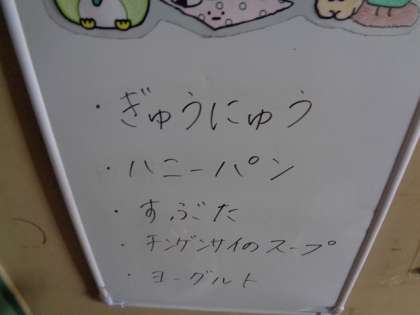 ・ぎゅうにゅう
・ハニーパン
・すぶた
・チンゲンサイのスープ
・ヨーグルト